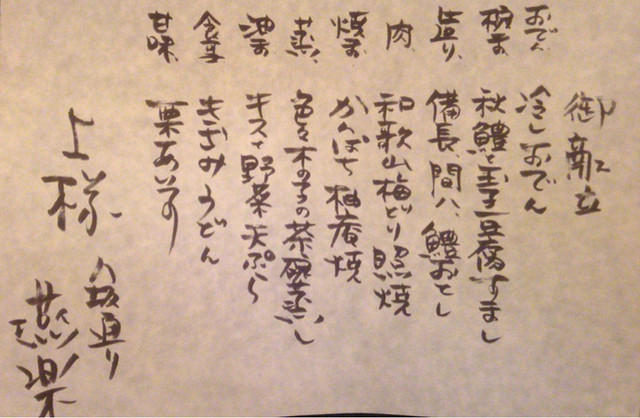 御献立
おでん 冷しおでん
椀す 秋鱧と玉子豆腐すまし
造り 備長、間八、鱧おとし
肉 和歌山梅どり照焼
焼す かんぱち柚庵焼
蒸し 色々木の子の茶碗蒸し
油す キスと野菜天ぷら
食事 きざみうどん
甘味 栗あいす
上様
八坂通り
燕楽